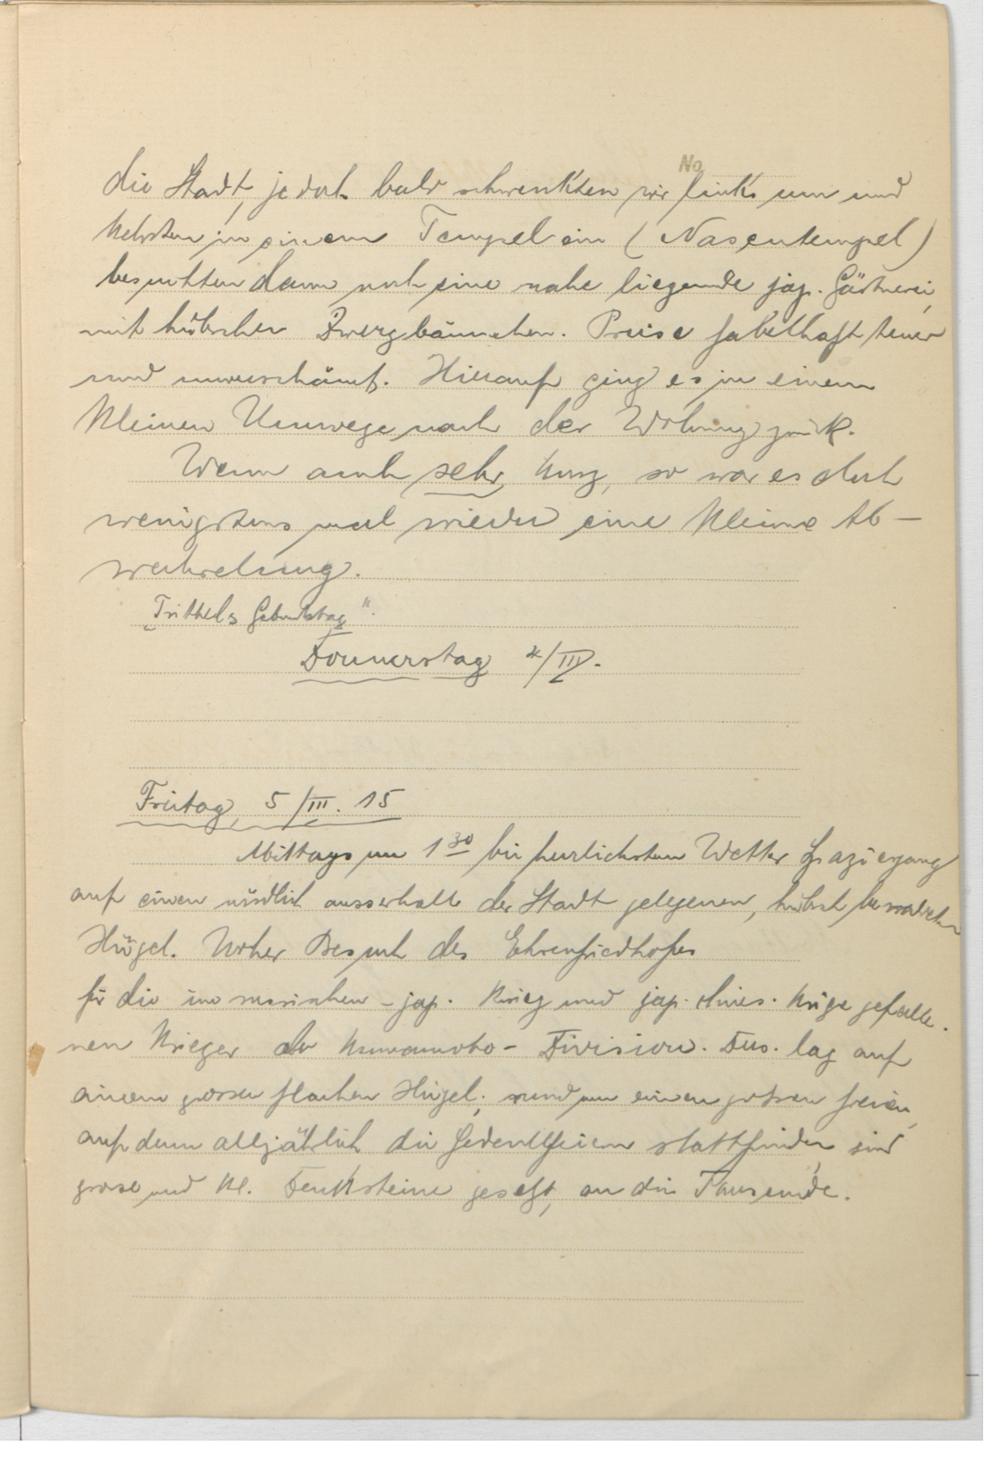 No
die Stadt, jedoch bald schwenkten wir links um und
kehrten in einem Tempel ein (Nasentempel)
besuchten dann noch eine nahe liegende jap. Gärtnerei,
mit hübschen Zwergbäumchen. Preise fabelhaft teuer
und unverschämt. Hierauf ging es in einem
kleinen Umwege nach der Wohnung zurück.
Wenn auch sehr kurz, so war es doch
wenigstens mal wieder eine kleine Ab-
wechselung.
„Geburtstag“.
Donnerstag 4/III.
Freitag, 5/III. 15
Mittags um 1 30 bei herrlichstem Wetter Spaziergang
auf einen nördlich ausserhalb der Stadt gelegenen, hübsch bewaldeten
Hügel. Vorher Besuch des Ehrenfriedhofes
für die im russischen-jap. Krieg und jap. chines. Kriege gefalle-
nen Krieger der Kumamoto-Division. Dies. lag auf
einem grossen flachen Hügel; rund um einen grossen freien,
auf dem alljährlich die Gedenkfeiern stattfinden sind
grosse und kl. Denksteine gesetzt, an die Tausende.